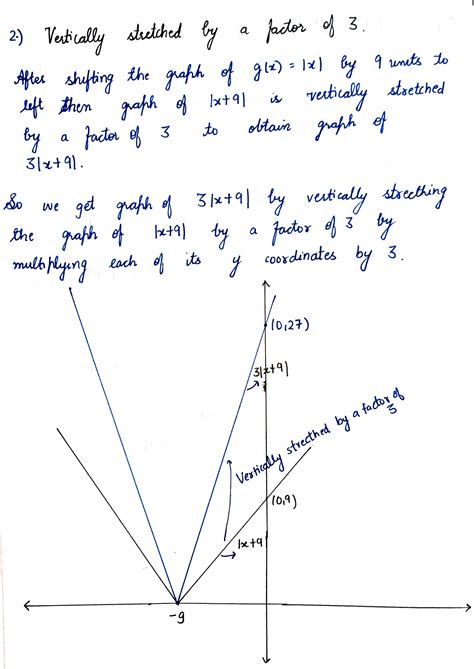 2.) Vertically stretched by a factor of 3.
After shifting the graph of g(x) = |x| by 9 units to
left then graph of |x+9| is vertically stretched
by a factor of 3 to obtain graph of
3|x+9|.
So we get graph of 3|x+9| by vertically strecthing
the graph of |x+9| by a factor of 3 by
multiplying each of its y coordinates by 3.
(0,27)
3|x+9|
Vertically strecthed by a factor of
3
(0,9)
|x+9|
-9